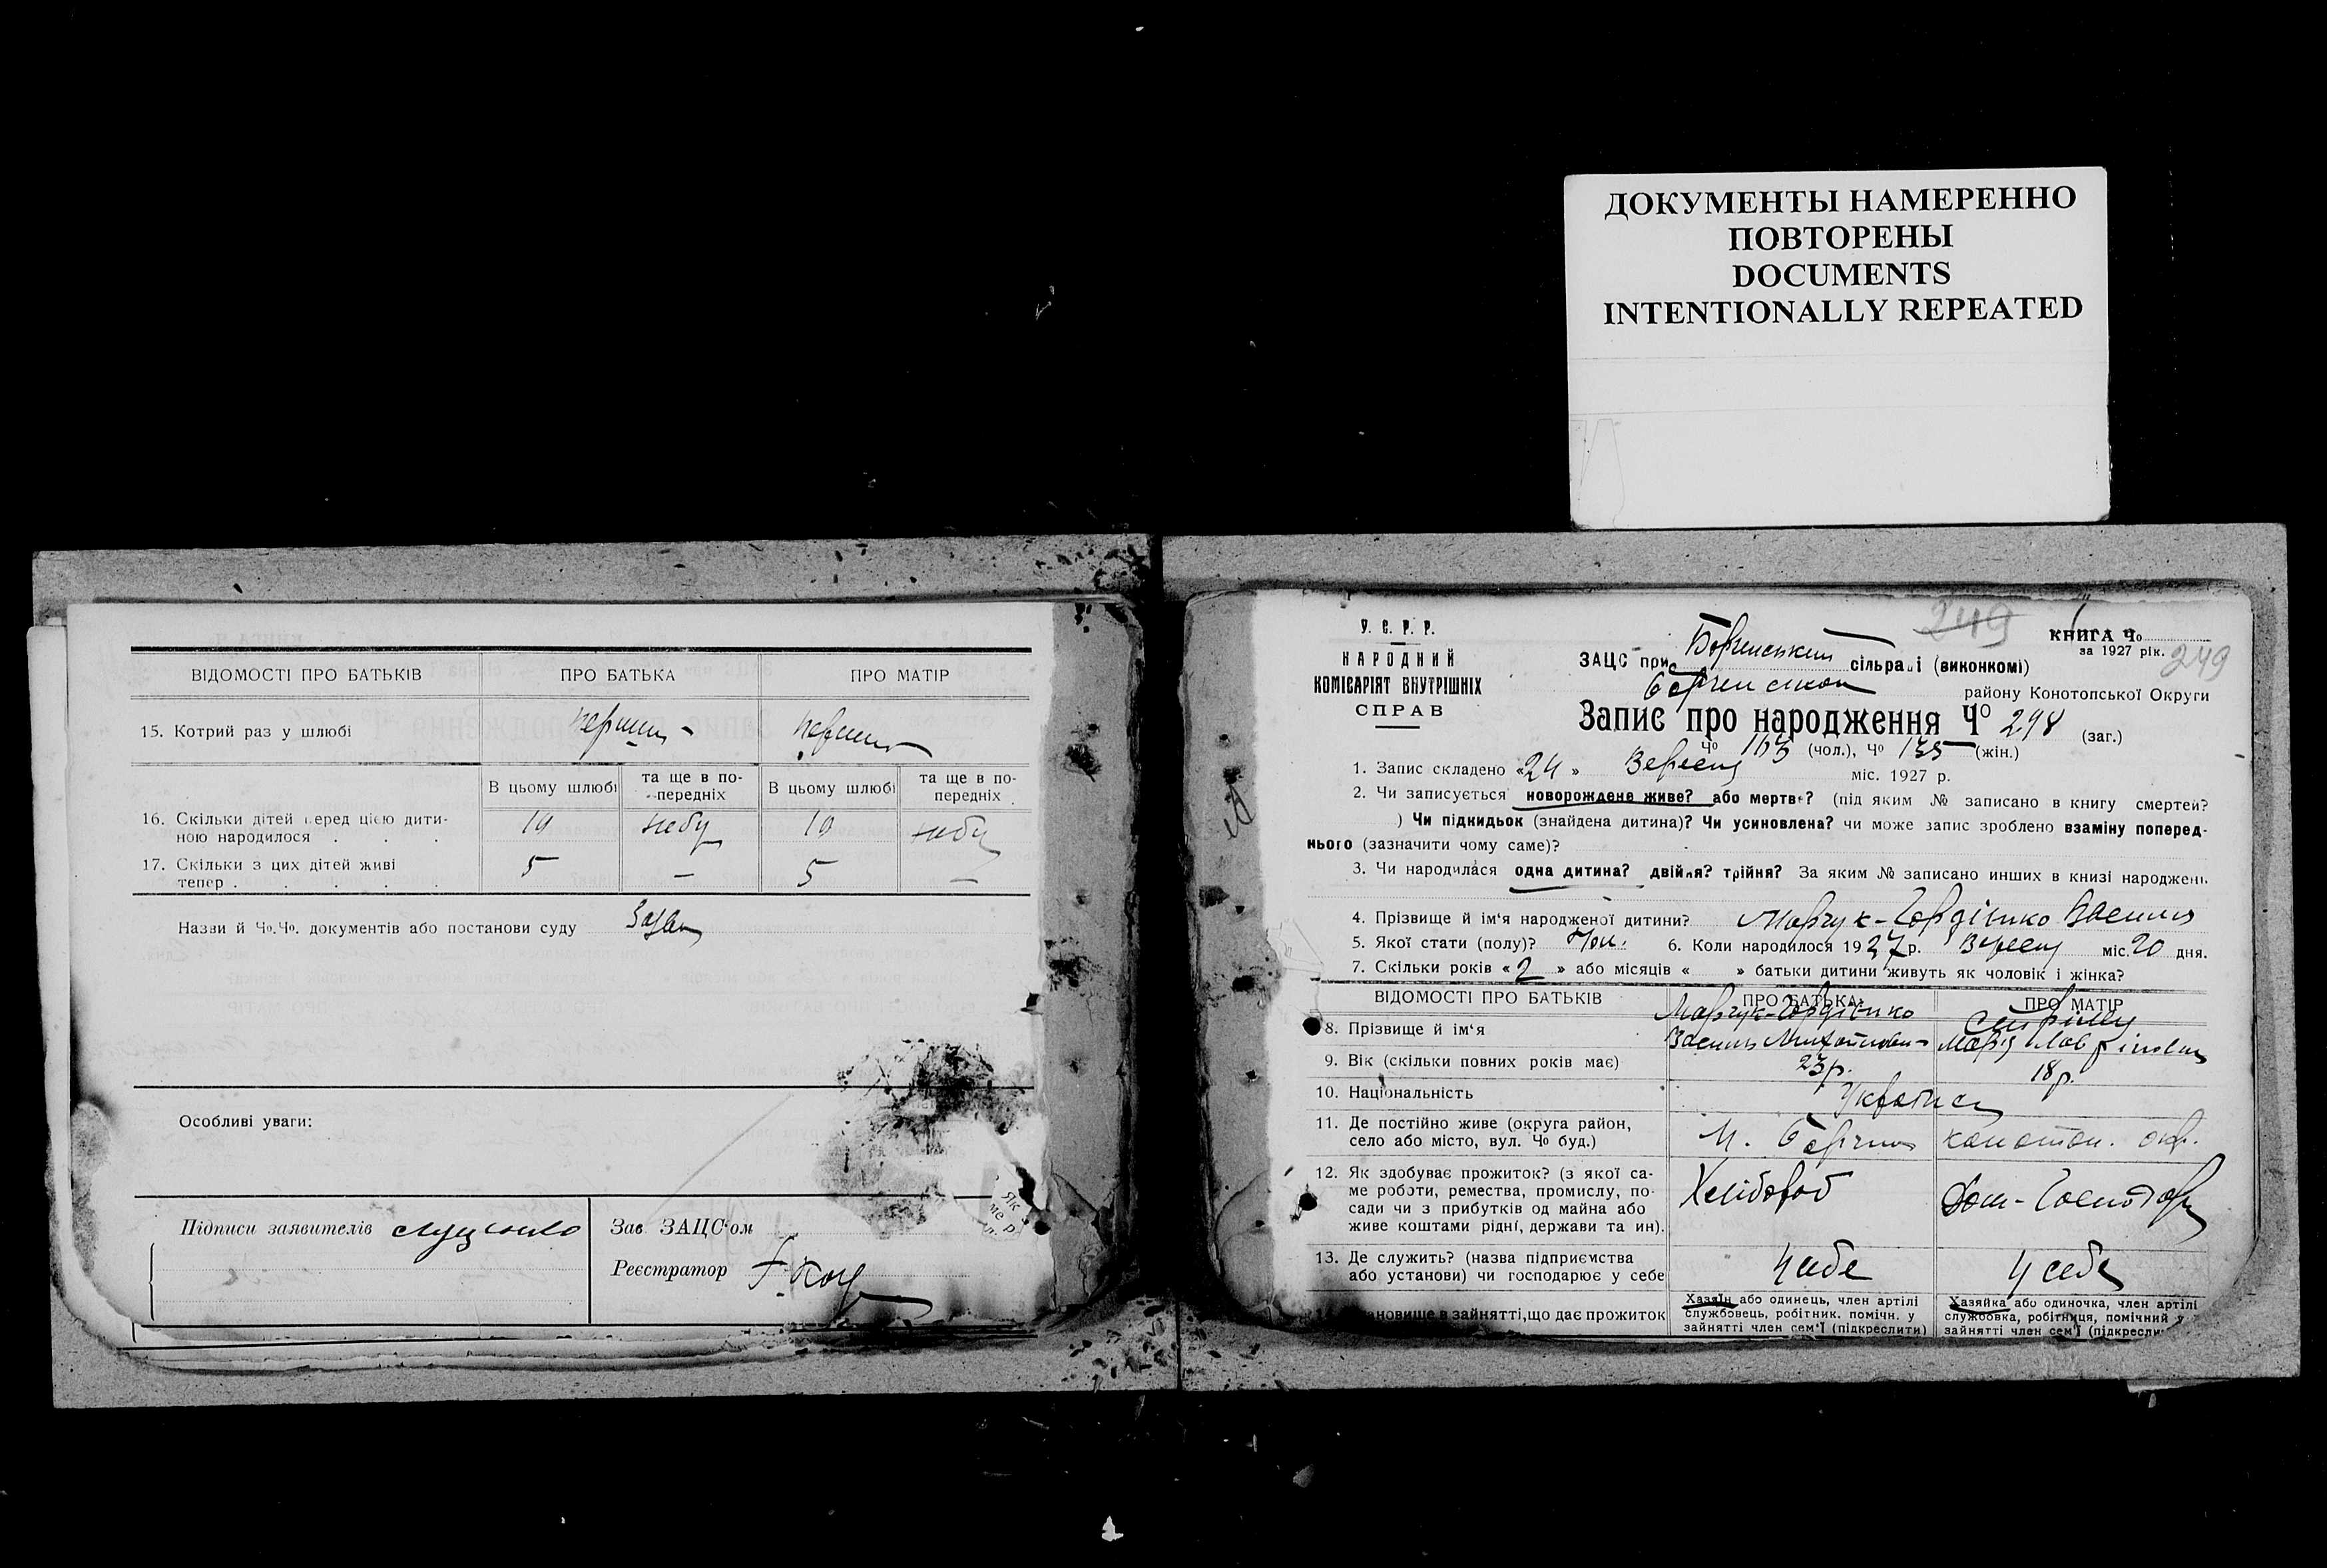 ДОКУМЕНТЫ НАМЕРЕННО
ПОВТОРЕНЫ
DOCUMENTS
INTENTIONALLY REPEATED
ВІДОМОСТІ ПРО БАТЬКІВ ПРО БАТЬКА ПРО МАТІР
15. Котрий раз у шлюбі
В цьому шлюбі та ще в по-
передніх В цьому шлюбі та ще в по-
передніх
16. Скільки дітей перед цією дити-
ною народилося . . . 10 небу 10 небу
17. Скільки з цих дітей живі
тепер . . . . . 5 — 5 —
Назви й Чо.Чо. документів або постанови суду
Особливі уваги:
Підписи заявителів
Зав. ЗАЦС'ом
Реєстратор
249
У. С. Р. Р.
НАРОДНИЙ
КОМІСАРІЯТ ВНУТРІШНІХ
СПРАВ
КНИГА Чо
за 1927 рік. 249
ЗАЦС при Борзенський сільраді (виконкомі)
району Конотопської Округи
Запис про народження Чо 298 (заг.)
Чо 163 (чол.), Чо 135 (жін.)
1. Запис складено « 24 » Вересня міс. 1927 р.
2. Чи записується новорождене живе? або мертве? (під яким № записано в книгу смертей?
) Чи підкидьок (знайдена дитина)? Чи усиновлена? чи може запис зроблено взаміну поперед-
нього (зазначити чому саме)?
3. Чи народилася одна дитина? двійня? трійня? За яким № записано инших в книзі народжень.
4. Прізвище й ім'я народженої дитини? Марчук-Гордієнко Василь
5. Якої стати (полу)? 6. Коли народилося 1927 р. Вересня міс. 20 дня.
7. Скільки років « 2 » або місяців « » батьки дитини живуть як чоловік і жінка?
ВІДОМОСТІ ПРО БАТЬКІВ ПРО БАТЬКА ПРО МАТІР
8. Прізвище й ім'я Марчук-Гордієнко
Василь Марія
9. Вік (скільки повних років має) 23 р. 18 р.
10. Національність
11. Де постійно живе (округа район,
село або місто, вул. Чо буд.) М. Борзна конотоп. окр.
12. Як здобуває прожиток? (з якої са-
ме роботи, ремества, промислу, по-
сади чи з прибутків од майна або
живе коштами рідні, держави та ин). Хлібороб Дом-Господар
13. Де служить? (назва підприємства
або установи) чи господарює у себе У себе У себе
ановище в зайнятті, що дає прожиток
Хазяїн або одинець, член артілі
службовець, робітник. помічн. у
зайнятті член сем'ї (підкреслити)
Хазяйка або одиночка, член артілі
службовка, робітниця, помічний у
зайнятті член сем'ї (підкресли